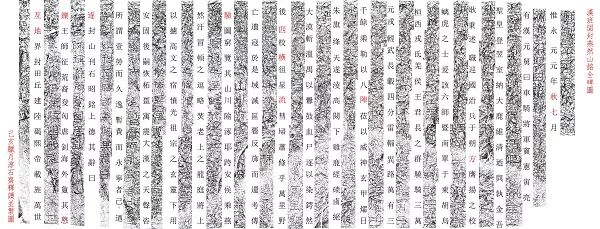 漢班固封燕然山銘全碑圖
惟永元元年秋七月
有漢元舅曰車騎將軍竇憲寅亮
聖皇登翌室納大鹿雄清遹與執金吾
耿秉述職巡國治兵于朔方鷹揚之校
螭虎之士爰該六師曁南單于東胡烏
桓西戎氐羌侯王君長之群驍騎三萬
元戎輕武長轂四分雷輜蔽路萬有三
千餘乘勒以八陣莅以威神玄甲燿日
朱旗絳天遂凌高闕下雞鹿經磧鹵絕
大漠斬溫禺以釁鼓血尸逐以染鍔然
後四校橫徂星流彗掃蕭條乎萬里野
亡遺寇於是域滅區殫反旆而還考傳
驗圖窮覽其山川隃涿耶跨安侯乘燕
然汗冒頓之逗略焚老上之龍庭將上
以攄高文之宿憤光祖宗之玄靈下用
安固後嗣恢柘畺寓震大漢之天聲咨
所謂壹勞而久逸暫費而永寧者已遹
遂封山刊石昭銘上德其辭曰
鑠王師征荒裔勦匈虐釗海外夐其邈
亙地界封田丘建隆碣熙帝載旌萬世
己亥臘月淳石齋釋讀並製圖